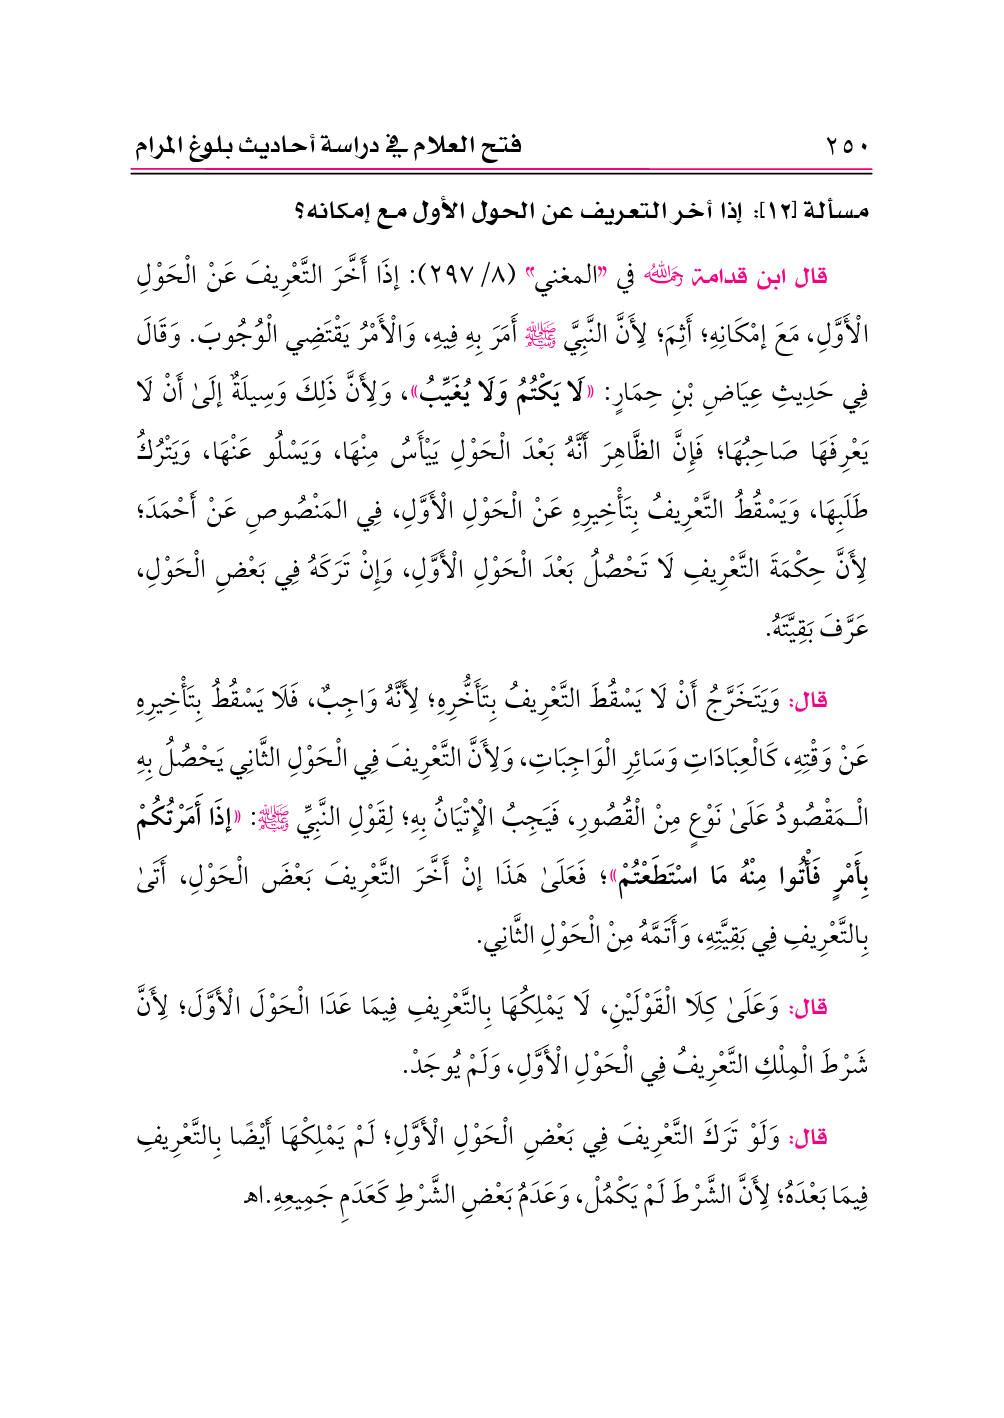 ٢٥٠ فتح العلام في دراسة أحاديث بلوغ المرام
مسألة [١٢]: إذا أخر التعريف عن الحول الأول مع إمكانه؟
قال ابن قدامة رحمه الله في "المغني" (٨/ ٢٩٧): إذَا أَخَّرَ التَّعْرِيفَ عَنْ الْحَوْلِ
الْأَوَّلِ، مَعَ إمْكَانِهِ؛ أَثِمَ؛ لِأَنَّ النَّبِيَّ ﷺ أَمَرَ بِهِ فِيهِ، وَالْأَمْرُ يَقْتَضِي الْوُجُوبَ. وَقَالَ
فِي حَدِيثِ عِيَاضِ بْنِ حِمَارٍ: «لَا يَكْتُمُ وَلَا يُغَيِّبُ»، وَلِأَنَّ ذَلِكَ وَسِيلَةٌ إلَىٰ أَنْ لَا
يَعْرِفَهَا صَاحِبُهَا؛ فَإِنَّ الظَّاهِرَ أَنَّهُ بَعْدَ الْحَوْلِ يَيْأَسُ مِنْهَا، وَيَسْلُو عَنْهَا، وَيَتْرُكُ
طَلَبِهَا، وَيَسْقُطُ التَّعْرِيفُ بِتَأْخِيرِهِ عَنْ الْحَوْلِ الْأَوَّلِ، فِي المَنْصُوصِ عَنْ أَحْمَدَ؛
لِأَنَّ حِكْمَةَ التَّعْرِيفِ لَا تَحْصُلُ بَعْدَ الْحَوْلِ الْأَوَّلِ، وَإِنْ تَرَكَهُ فِي بَعْضِ الْحَوْلِ،
عَرَّفَ بَقِيَّتَهُ.
قال: وَيَتَخَرَّجُ أَنْ لَا يَسْقُطَ التَّعْرِيفُ بِتَأَخُّرِهِ؛ لِأَنَّهُ وَاجِبٌ، فَلَا يَسْقُطُ بِتَأْخِيرِهِ
عَنْ وَقْتِهِ، كَالْعِبَادَاتِ وَسَائِرِ الْوَاجِبَاتِ، وَلِأَنَّ التَّعْرِيفَ فِي الْحَوْلِ الثَّانِي يَحْصُلُ بِهِ
الْـمَقْصُودُ عَلَىٰ نَوْعٍ مِنْ الْقُصُورِ، فَيَجِبُ الْإِتْيَانُ بِهِ؛ لِقَوْلِ النَّبِيِّ ﷺ: «إذَا أَمَرْتُكُمْ
بِأَمْرٍ فَأْتُوا مِنْهُ مَا اسْتَطَعْتُمْ»؛ فَعَلَىٰ هَذَا إنْ أَخَّرَ التَّعْرِيفَ بَعْضَ الْحَوْلِ، أَتَىٰ
بِالتَّعْرِيفِ فِي بَقِيَّتِهِ، وَأَتَمَّهُ مِنْ الْحَوْلِ الثَّانِي.
قال: وَعَلَىٰ كِلَا الْقَوْلَيْنِ، لَا يَمْلِكُهَا بِالتَّعْرِيفِ فِيمَا عَدَا الْحَوْلَ الْأَوَّلَ؛ لِأَنَّ
شَرْطَ الْمِلْكِ التَّعْرِيفُ فِي الْحَوْلِ الْأَوَّلِ، وَلَمْ يُوجَدْ.
قال: وَلَوْ تَرَكَ التَّعْرِيفَ فِي بَعْضِ الْحَوْلِ الْأَوَّلِ؛ لَمْ يَمْلِكْهَا أَيْضًا بِالتَّعْرِيفِ
فِيمَا بَعْدَهُ؛ لِأَنَّ الشَّرْطَ لَمْ يَكْمُلْ، وَعَدَمُ بَعْضِ الشَّرْطِ كَعَدَمِ جَمِيعِهِ.اهـ